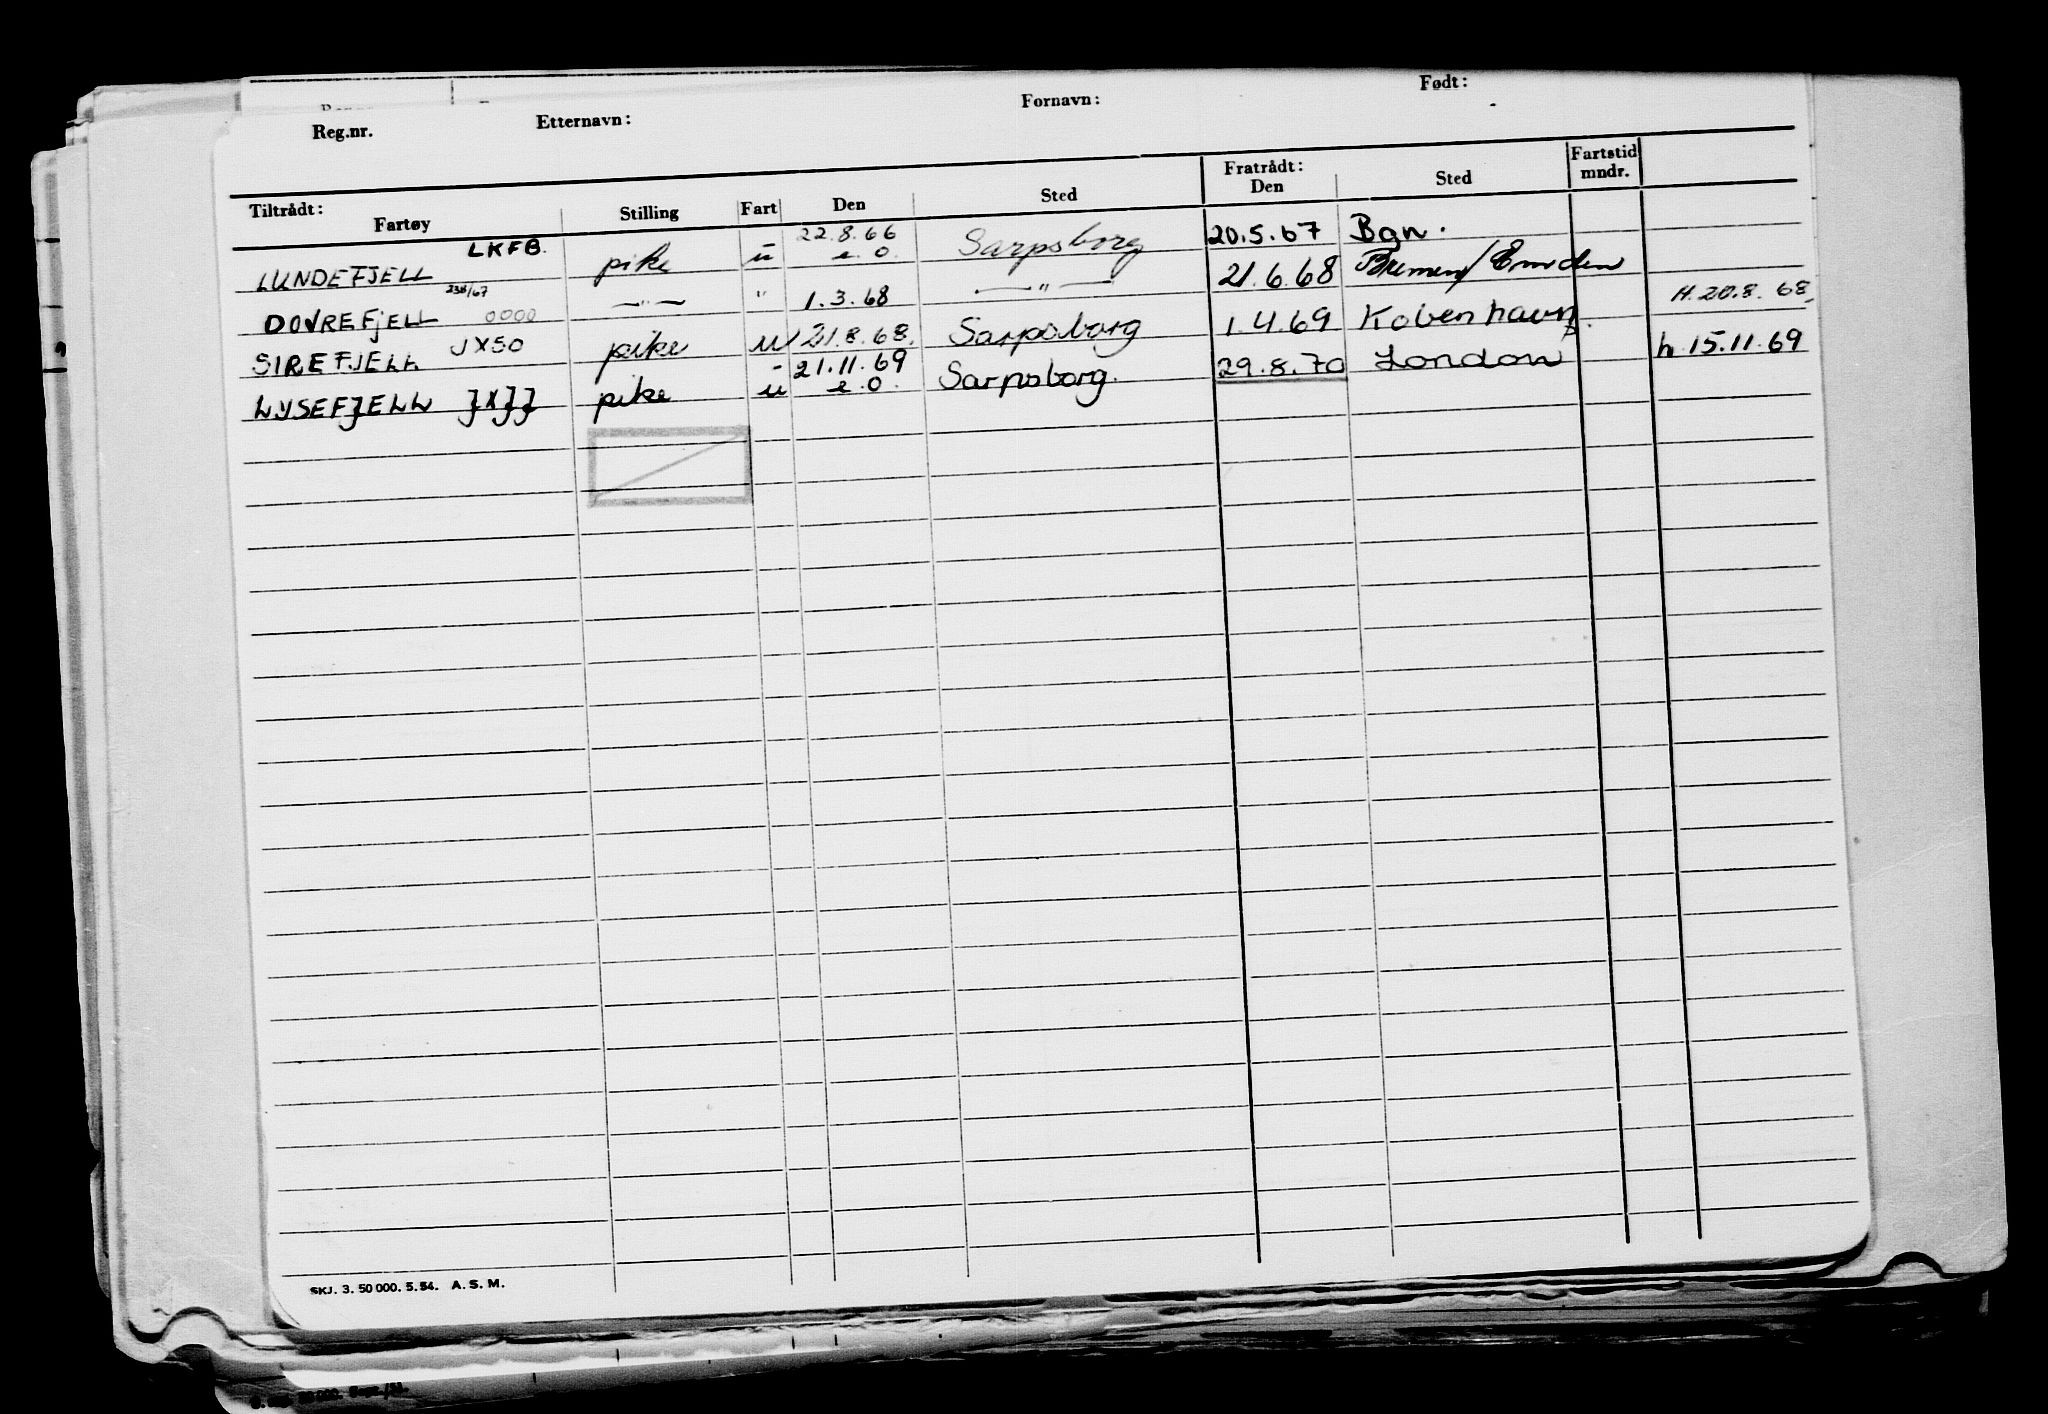 Reg.nr. Etternavn: Fornavn: Født:
Tiltrådt: Fratrådt: Fartstid
Fartøy Stilling Fart Den Sted Den Sted mndr.
LUNDEFJELL LKFB. pike u 22.8.66 e.o. Sarpsborg 20.5.67 Bgn.
DOVREFJELL 238/67 0000 —"— " 1.3.68 —"— 21.6.68 Bremen/Emden
SIREFJELL JX50 pike u 21.8.68. Sarpsborg 1.4.69 Kobenhavn H.20.8.68,
LYSEFJELL JXJJ pike u 21.11.69 e.o. Sarpsborg. 29.8.70 London h 15.11.69
SKJ. 3. 50 000. 5. 54. A. S. M.